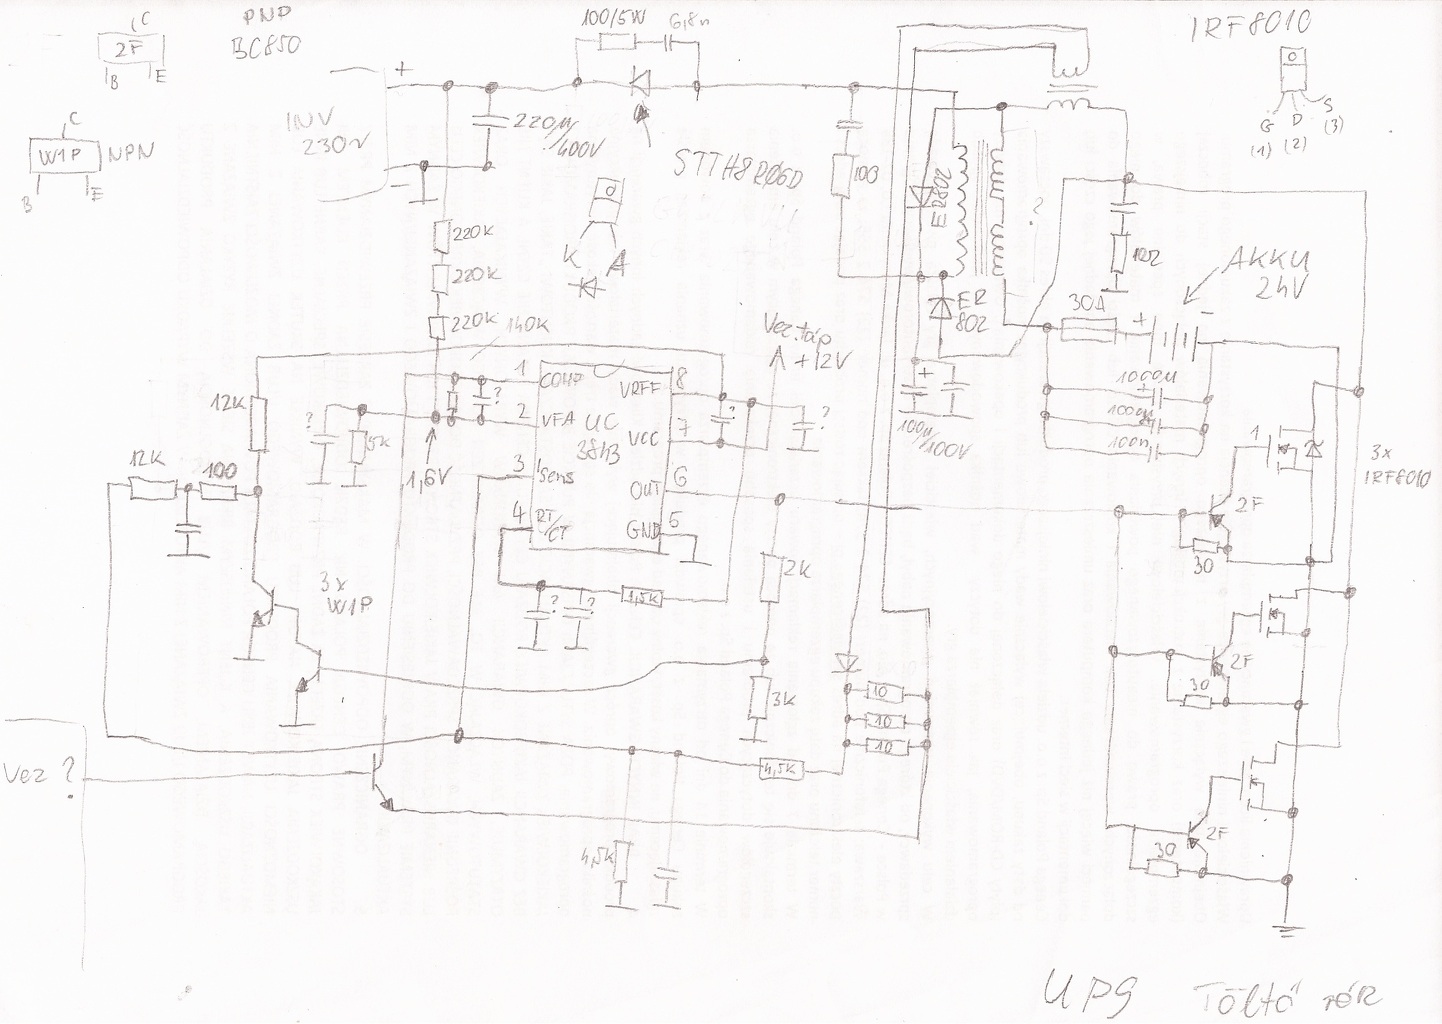 C
2F
B
E
PNP
BC850
100/5W
6,8n
IRF8010
G
D
S
(1)
(2)
(3)
C
W1P
NPN
B
E
+
INV
230V
-
220µ
/400V
STTH8R06D
K
A
100
ER802
?
10Ω
AKKU
24V
220K
220K
220K
140K
ER
802
30A
+
-
Vez.táp
+12V
1000µ
100µ
100n
+
100µ
/100V
12K
?
5K
1,6V
?
1
COMP
2
VFA
3
Sens
4
RT/
CT
UC
3843
VREF
8
VCC
7
OUT
6
GND
5
?
?
12K
100
1
3x
IRF8010
2F
30
3x
W1P
?
?
1,5K
2K
3K
10
10
10
2F
30
Vez ?
4,5K
4,5K
2F
30
UPS Töltő rész